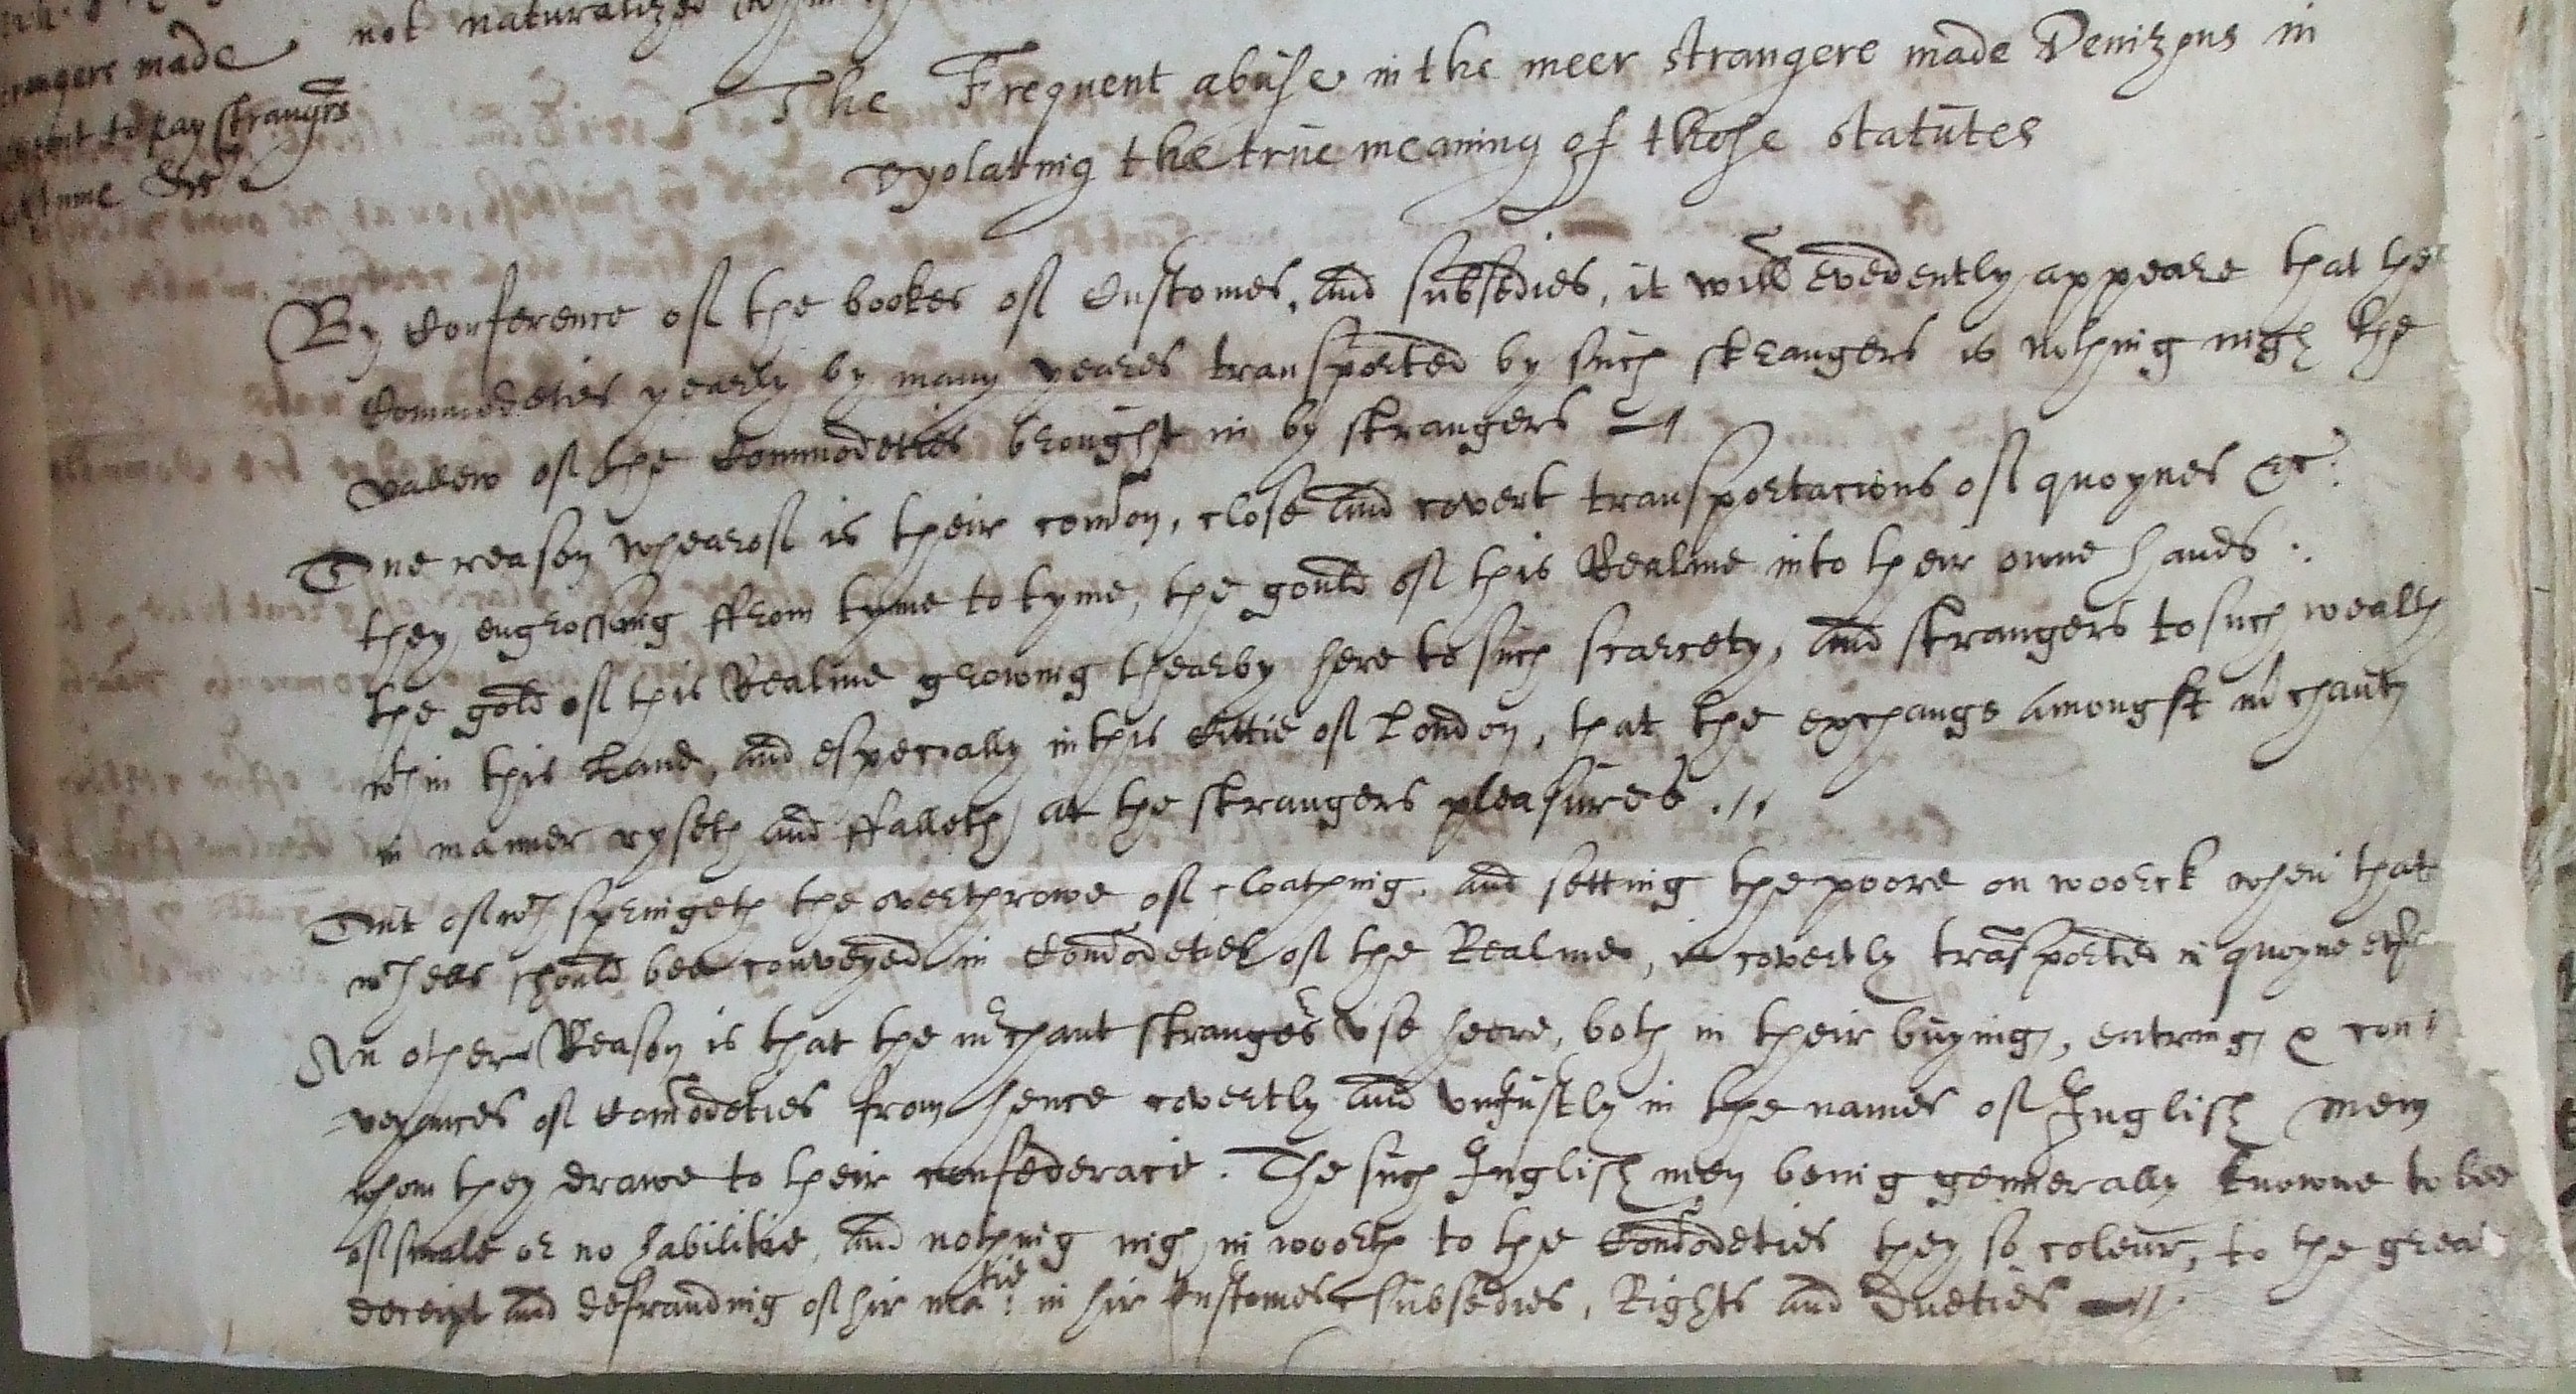 not naturalized
strangers made
to pay strangrs
The Frequent abuse in the meer strangers made Denizens in
vyolating the true meaning of those statutes
By Conference of the bookes of Customes, and subsedies, it will evedently appeare that the
Commodeties yearly by many yeares transported by such strangers is nothing nigh the
vallew of the Commodeties brought in by strangers
One reason whearof is their comon, close and covert transportacions of quoynes &c:
they engrossing ffrom tyme to tyme, the gould of this Realme into their owne hands:
the gold of this Realme growing thearby here to such scarcety, and strangers to such wealth
wth in this Land, and especially in this Cittie of London, that the exchange amongst mrchants
in manner ryseth and ffalleth at the strangers pleasures.//
Out of wch springeth the overthrowe of cloathing, and setting the poore on woorck when that
wch ells should bee conveyed in Comodeties of the Realme, is covertly trasported in quoyne &c
An other Reason is that the mrchant strangers vse heere, both in their buying, entring & con
veyances of Comodeties from hence covertly and vniustly in the names of Inglish men
whom they drawe to their confederacie. The such Inglish men being gennerally knowne to bee
of smale or no habilitie, and nothing nigh in woorth to the Comodeties they so coleur, to the great
deceipt and defrauding of hir matie: in hir Customes subsedies, Rights and Dueties